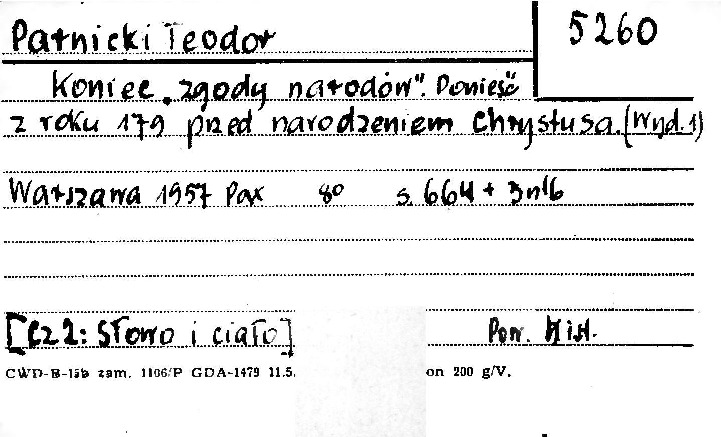 Parnicki Teodor 5260
Koniec „zgody narodów". Powieść
z roku 179 przed narodzeniem Chrystusa. (Wyd. 1)
Warszawa 1957 Pax 8° s. 664 + 3 nlb
[Cz 2: Słowo i ciało] Pow. Hist.
CWD-B-15b zam. 1106/P GDA-1479 11.5. on 200 g/V.